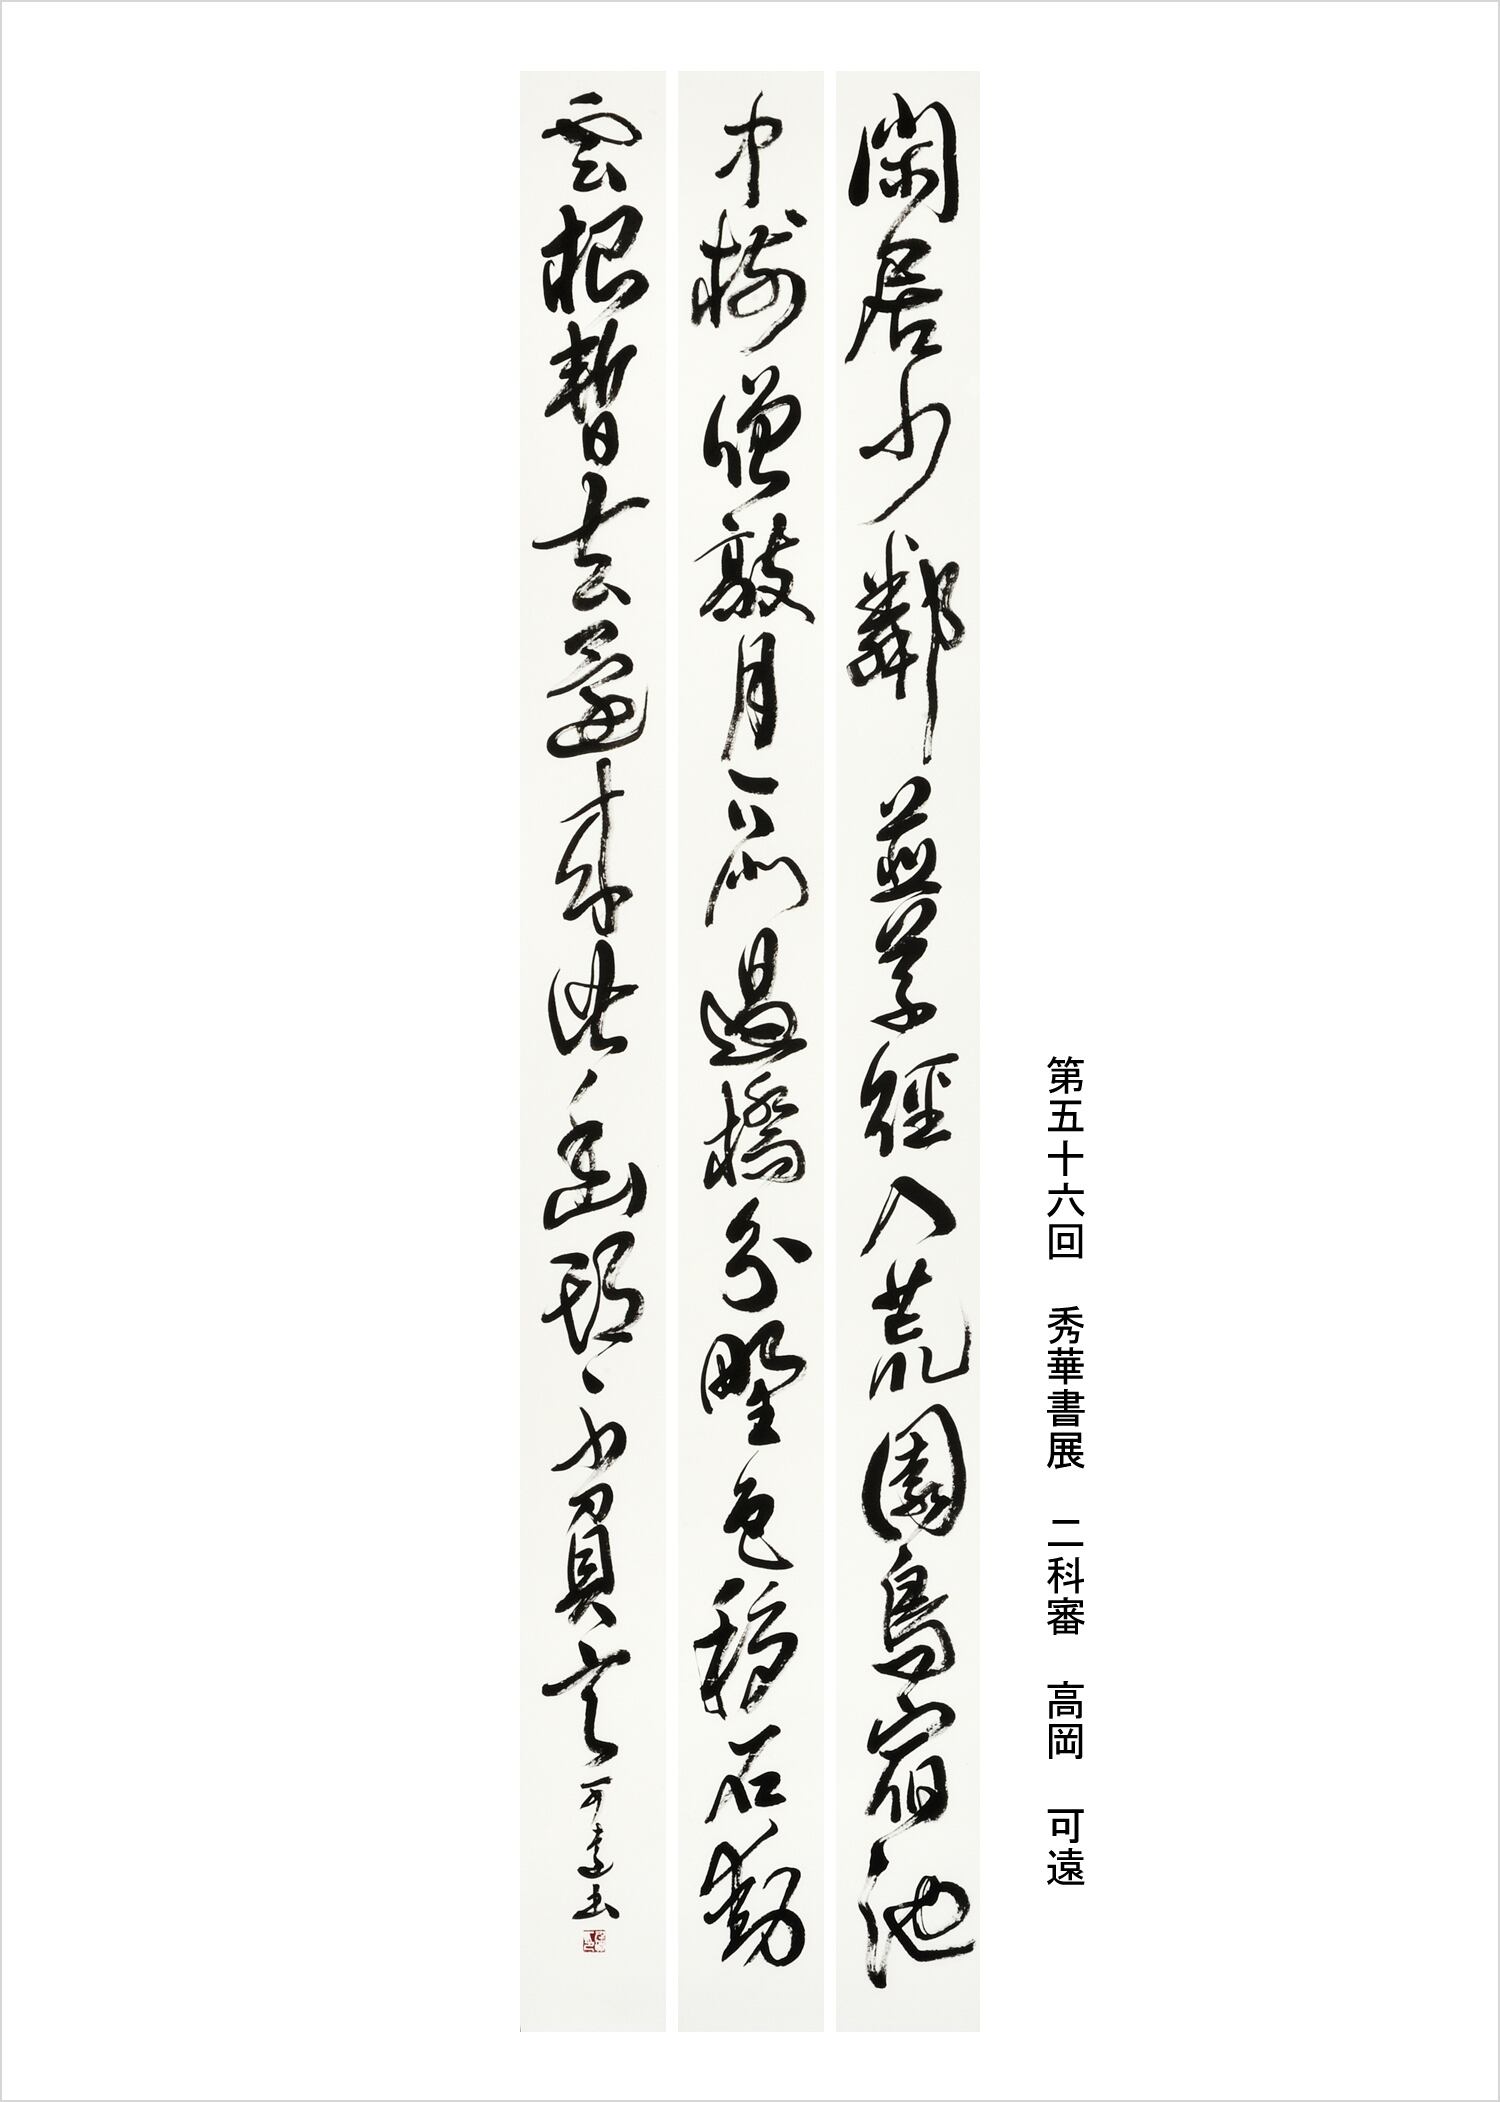 第五十六回　秀華書展　二科審　高岡　可遠
閑居少鄰並草徑入荒園鳥宿池
中樹僧敲月下門過橋分野色移石動
雲根暫去還來此幽期不負言 可遠書